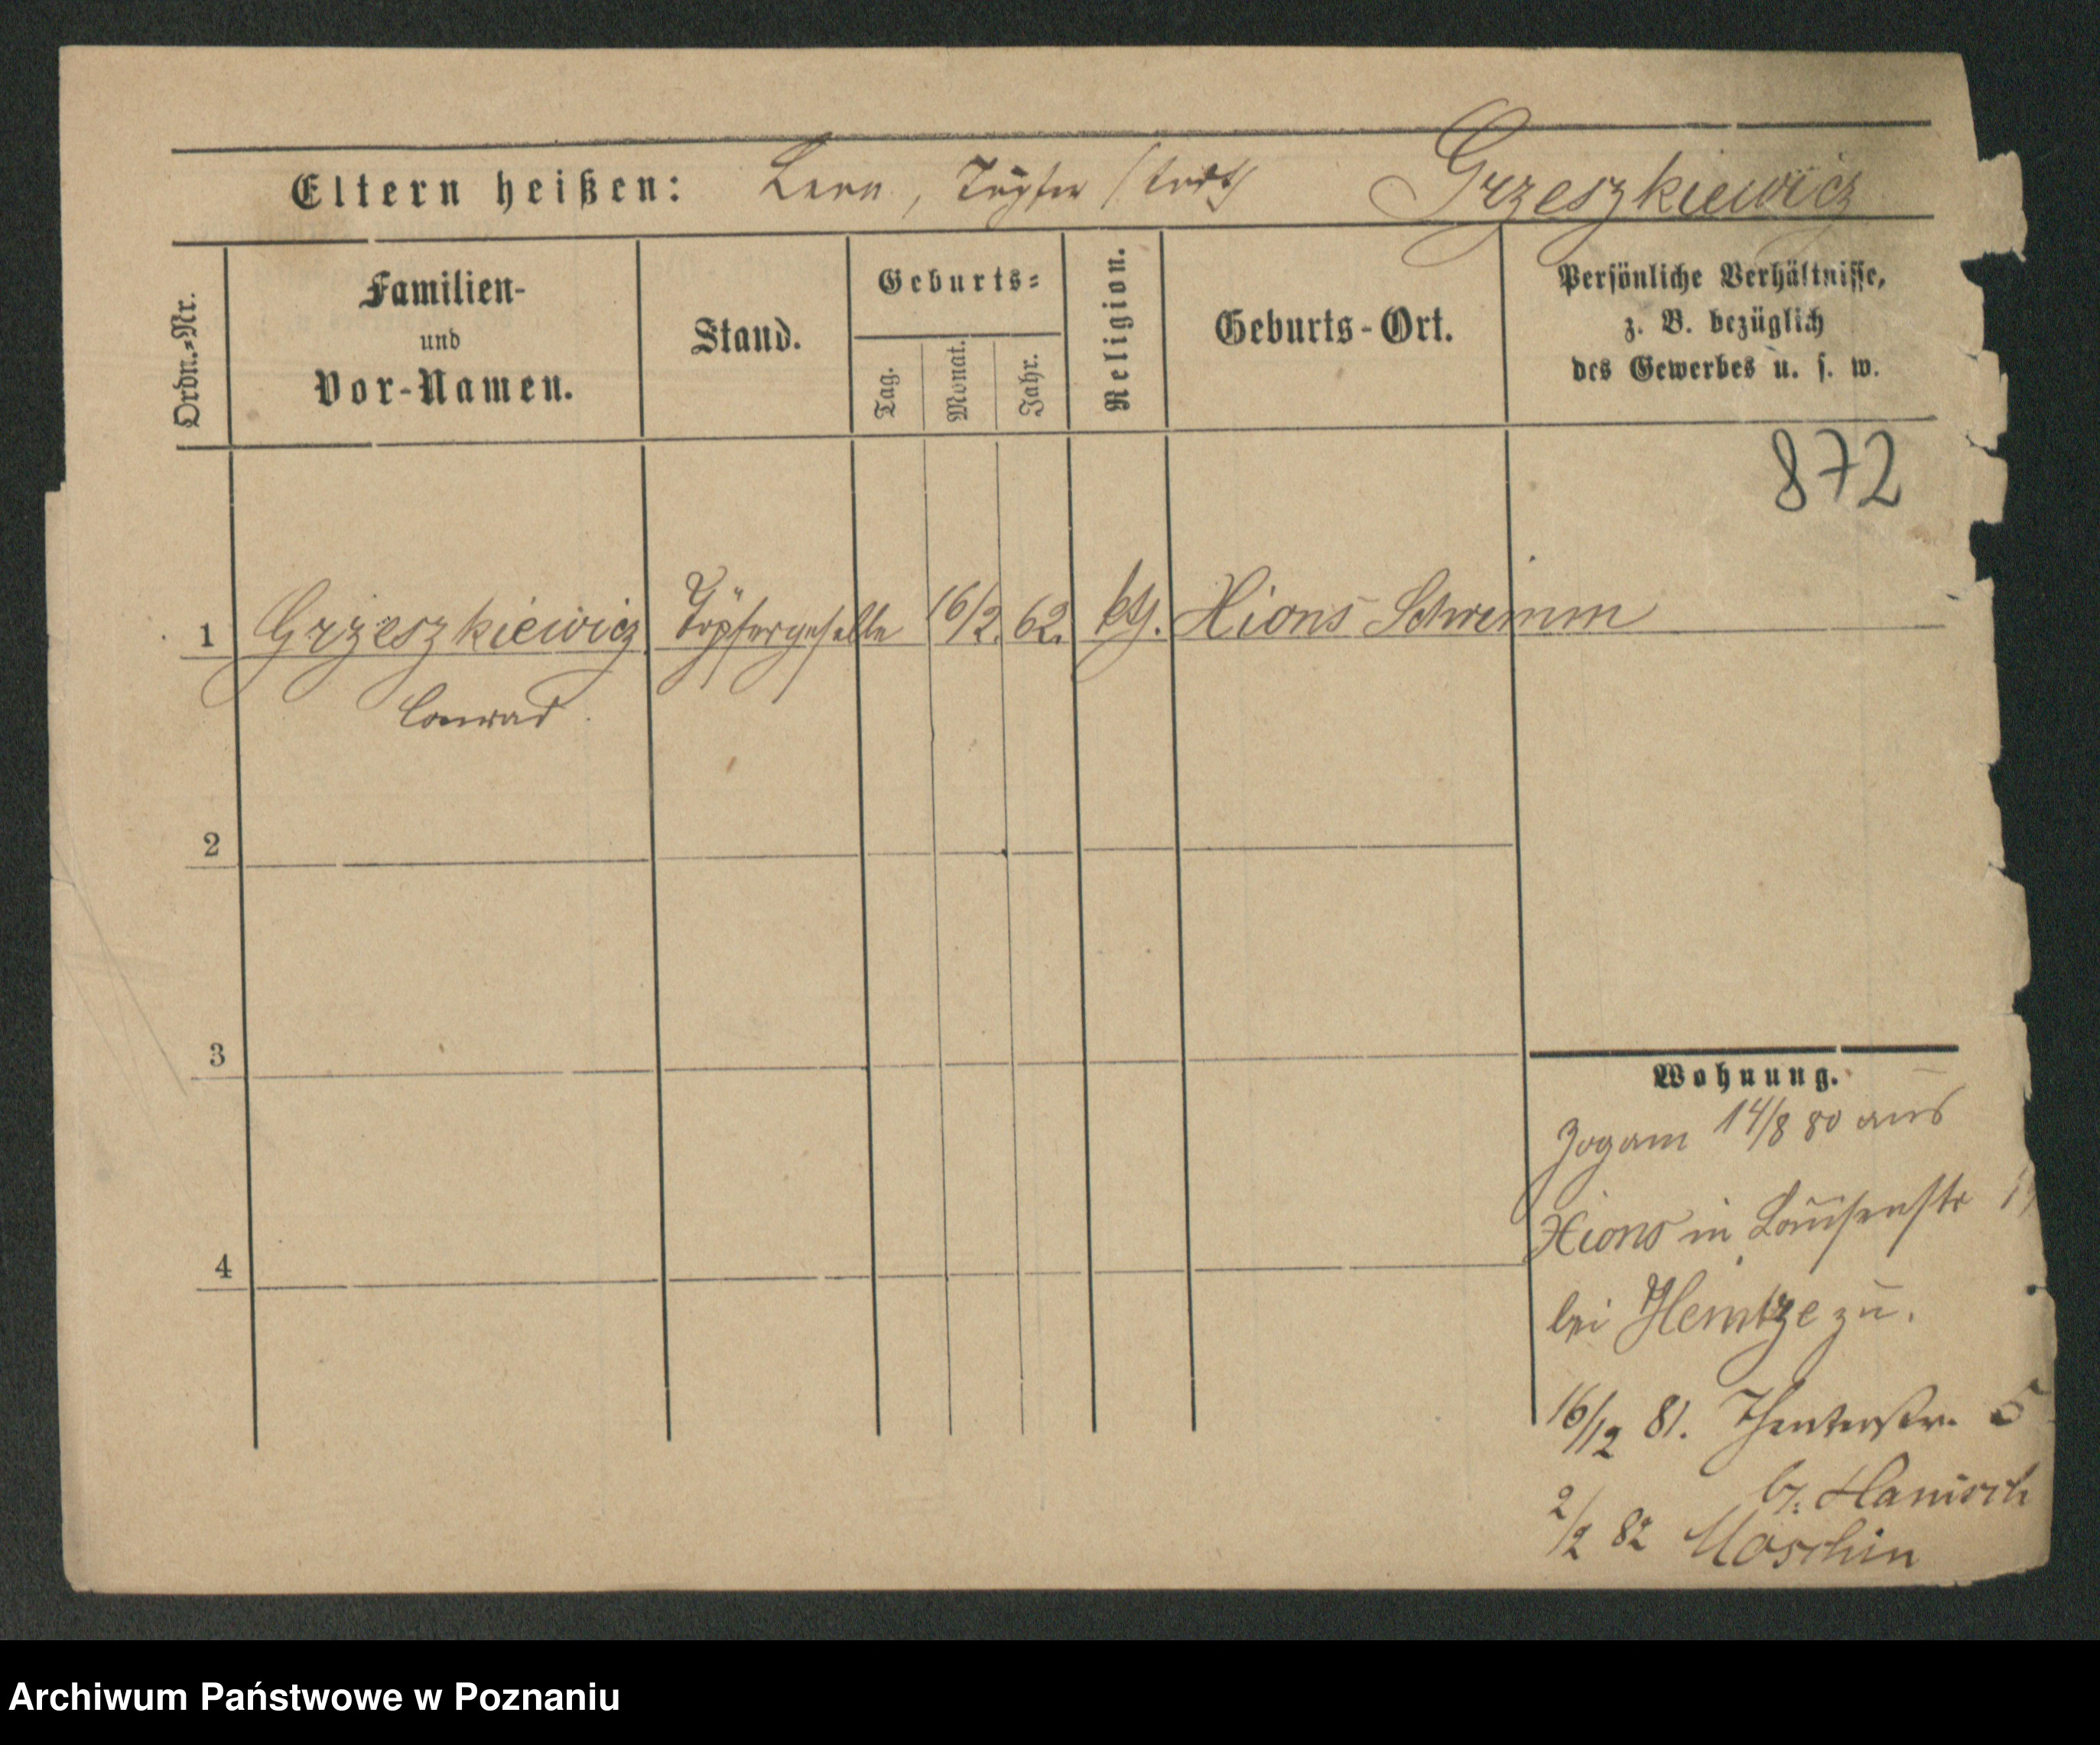 Eltern heißen: Töpfer Grzeszkiewicz
Ordn.=Nr.
Familien-
und
Vor-Namen.
Stand.
Geburts=
Tag.
Monat.
Jahr.
Religion.
Geburts-Ort.
Persönliche Verhältnisse,
z. B. bezüglich
des Gewerbes u. s. w.
872
1 Grzeszkiewicz Töpfergeselle 16/2. 62. Xions Schrimm
Conrad
2
3
4
Wohnung.
Zog am 14/8 80 aus
Xions in Louisenstr
bei Hentze zu.
16/12 81. Theaterstr. 5
b. Hanisch
2/2 82 Moschin
Archiwum Państwowe w Poznaniu